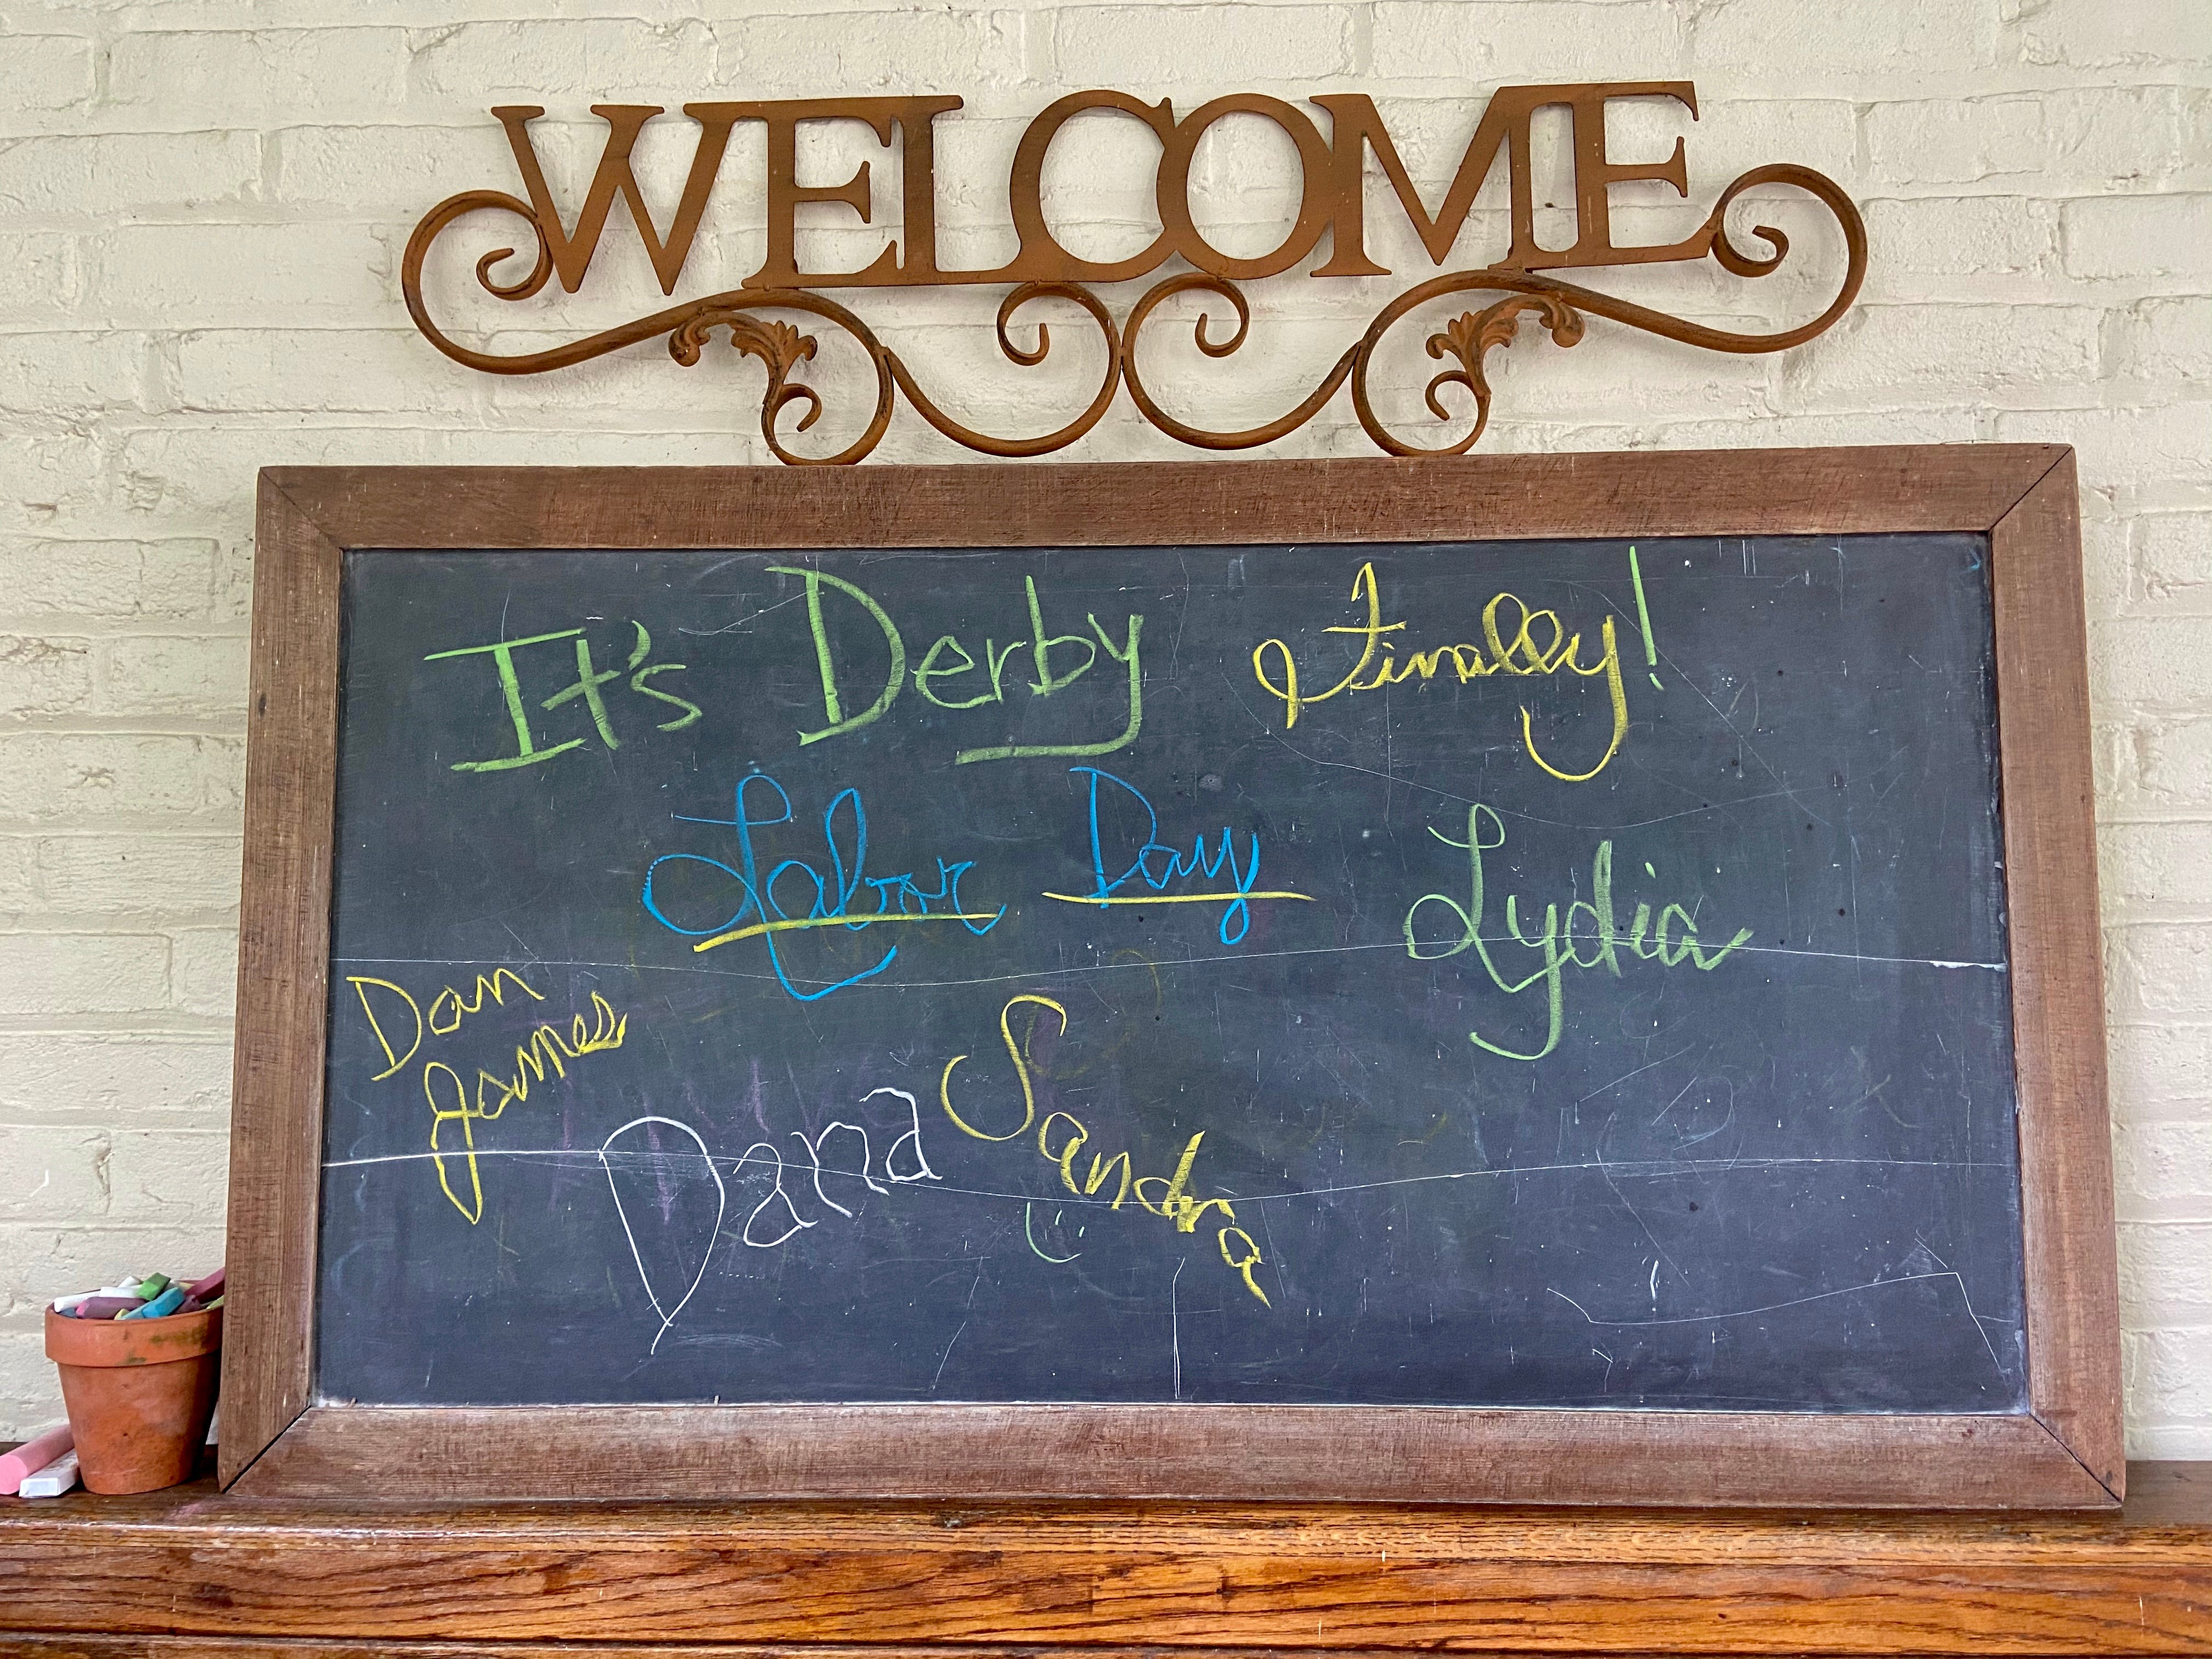 WELCOME
It's Derby Finally!
Labor Day
Lydia
Dan
James
Dana
Sandra